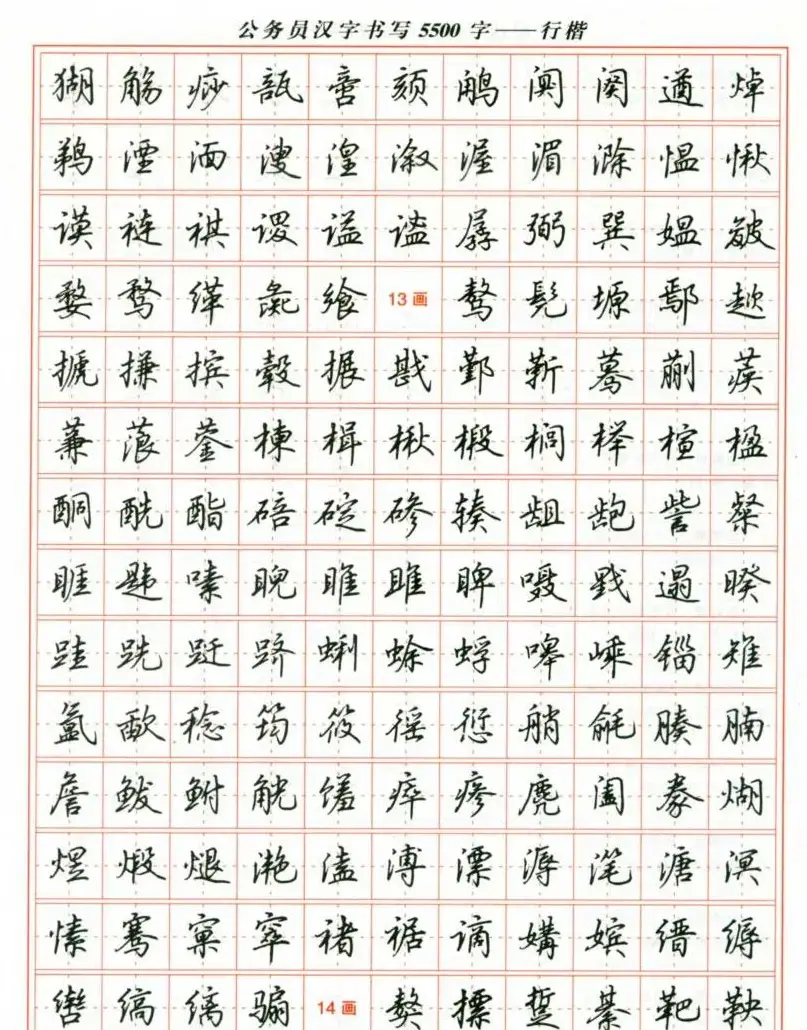 公务员汉字书写5500字——行楷
猢觞痧瓿啻颏鹇阒阕遒焯
鹈湮湎溲湟溆渥湄滁愠愀
谟裢祺谡谥谧孱弼巽媪皴
婺骛缂彘飨13画骜髡塬鄢趑
搋搛摈毂搌戡鄞靳蓦蒯蒺
蒹蒗蓥楝楫楸椴榈榉楦楹
酮酰酯碚碇碜辏龃龅訾粲
睚韪嗪睨睢雎睥嗫戢遢暌
跬跣跹跻蜊蜍蜉嗥嵊锱雉
氲歃稔筠筱徭愆艄毹腠腩
詹鲅鲋觥馐瘁瘆麂阖豢煳
煜煅煺滟溘溥溧溽滗溏溟
愫骞窠窣褚裾谪媾嫔缙缛
辔缟缡骟14画獒摽踅綦鞅